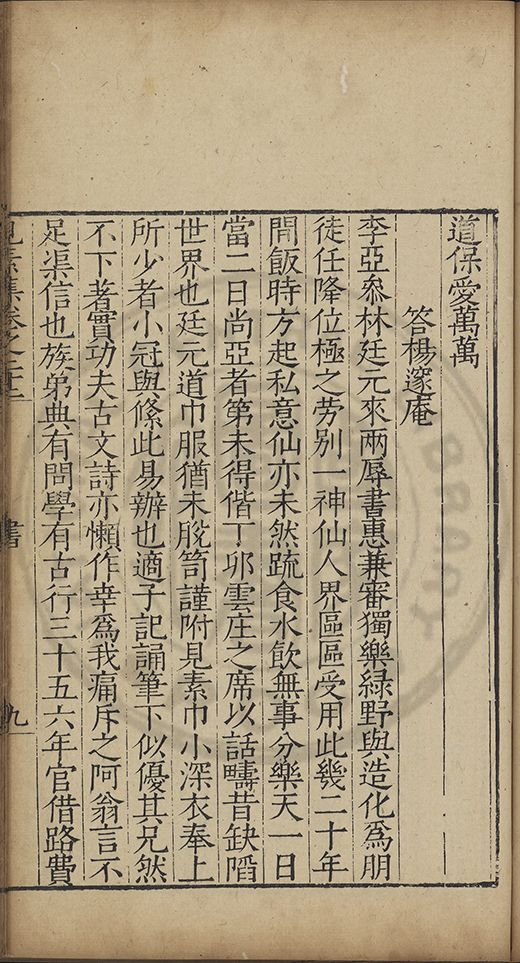 道保愛萬萬
答楊邃庵
李亞叅林廷元來兩辱書惠兼審獨樂緑野與造化爲朋
徒任隆位極之劳別一神仙人界區區受用此幾二十年
間飯時方起私意仙亦未然疏食水飲無事分樂天一日
當二日尚亞者第未得偕丁邜雲庄之席以話疇昔缺䧟
世界也廷元道巾服猶未脫笥謹附見素巾小深衣奉上
所少者小冠與絛此易辦也適子記誦筆下似優其兄然
不下著實功夫古文詩亦懶作幸爲我痛斥之阿翁言不
足渠信也族弟典有問學有古行三十五六年官借路費
見素集卷之二十二
書
九